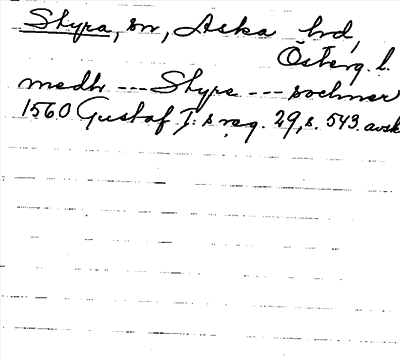 Styra, sn, Aska hd,
Österg. l.
medh --- Styre --- sochner
1560 Gustaf I:s reg. 29, s. 543. avskr